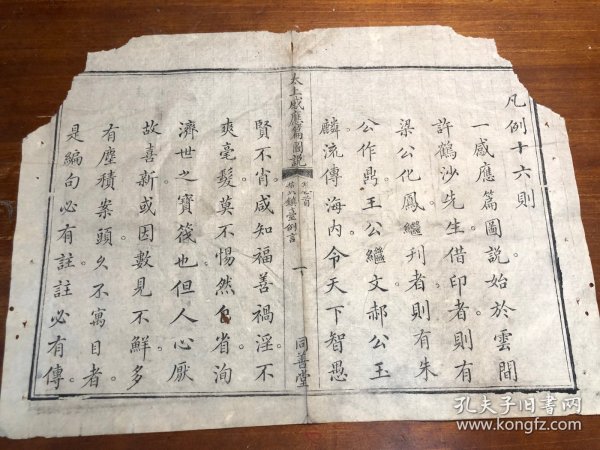 凡例十六則
一感應篇圖說始於雲間
許鶴沙先生借印者則有
梁公化鳳繼刊者則有朱
公作鼎王公繼文郝公玉
麟流傳海內今天下智愚
太上感應篇圖說
例言
一
同善堂
賢不肖咸知福善禍淫不
爽毫髮莫不惕然自省洵
濟世之寶筏也但人心厭
故喜新或因數見不鮮多
有塵積案頭久不寓目者
是編句必有註註必有傳
孔夫子旧书网
www.kongfz.com